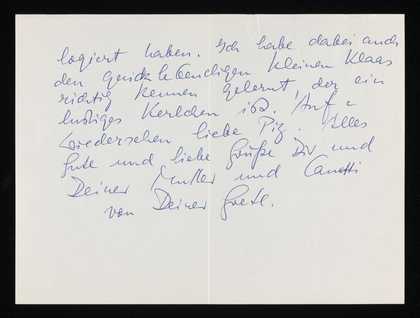 logiert haben. Ich habe dabei auch
den quicklebendigen kleinen Klaas
richtig kennen gelernt, der ein
lustiges Kerlchen ist. Auf
Wiedersehen liebe Pig. Alles
Gute und liebe Grüße Dir und
Deiner Mutter und Canetti
von Deiner Grete.